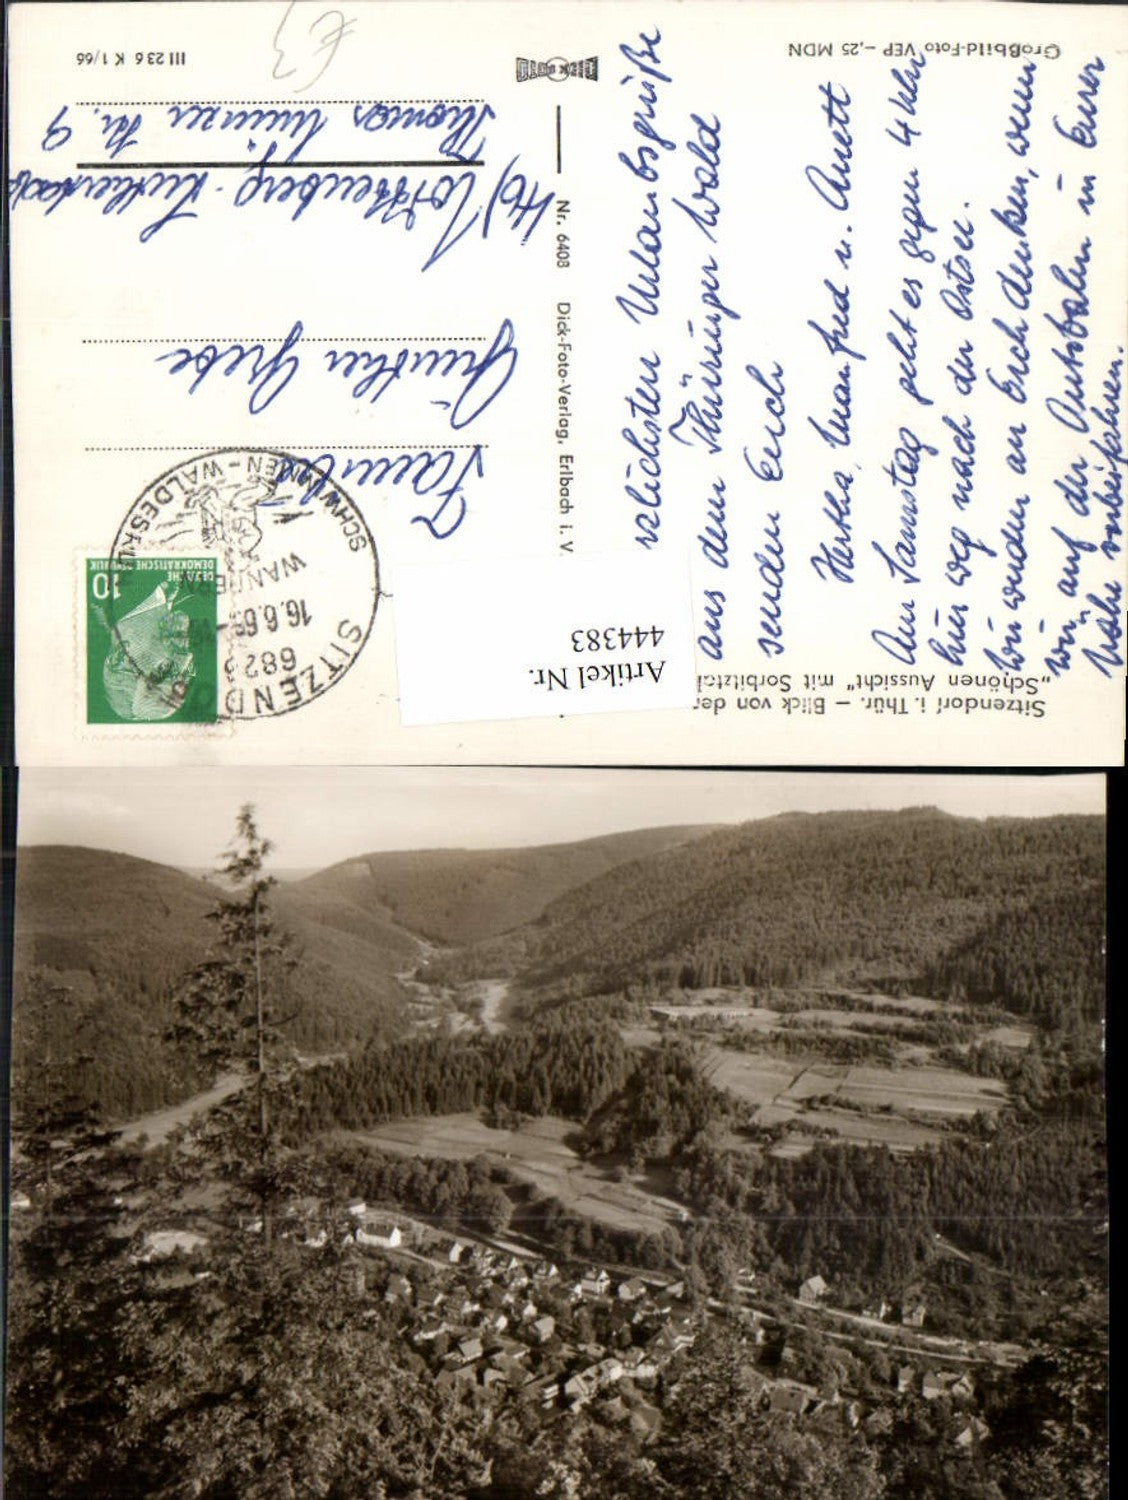 Sitzendorf i. Thür. – Blick von der
„Schönen Aussicht" mit Sorbitztal
szlichsten Urlaubsgrüße
aus dem Thüringer Wald
senden Euch
Hertha, Manfred u. Anett
Am Samstag geht es gegen 4 Uhr
hier weg nach der Ostsee.
Wir werden an Euch denken, wenn
wir auf der Autobahn in Eurer
Nähe vorbeifahren.
Großbild-Foto VEP -,25 MDN
Artikel Nr.
444383
Nr. 6408 Dick-Foto-Verlag, Erlbach i. V.
DICK FOTO
DEUTSCHE
DEMOKRATISCHE REPUBLIK
10
SITZENDORF
682
16.6.6
WANDERN
SCHWIMMEN - WALDESRUH
Familie
Günther Grebe
(46) Wittenberg-Lutherstadt
Thomas Münzer Str. 9
III 23 6 K 1/66
€3